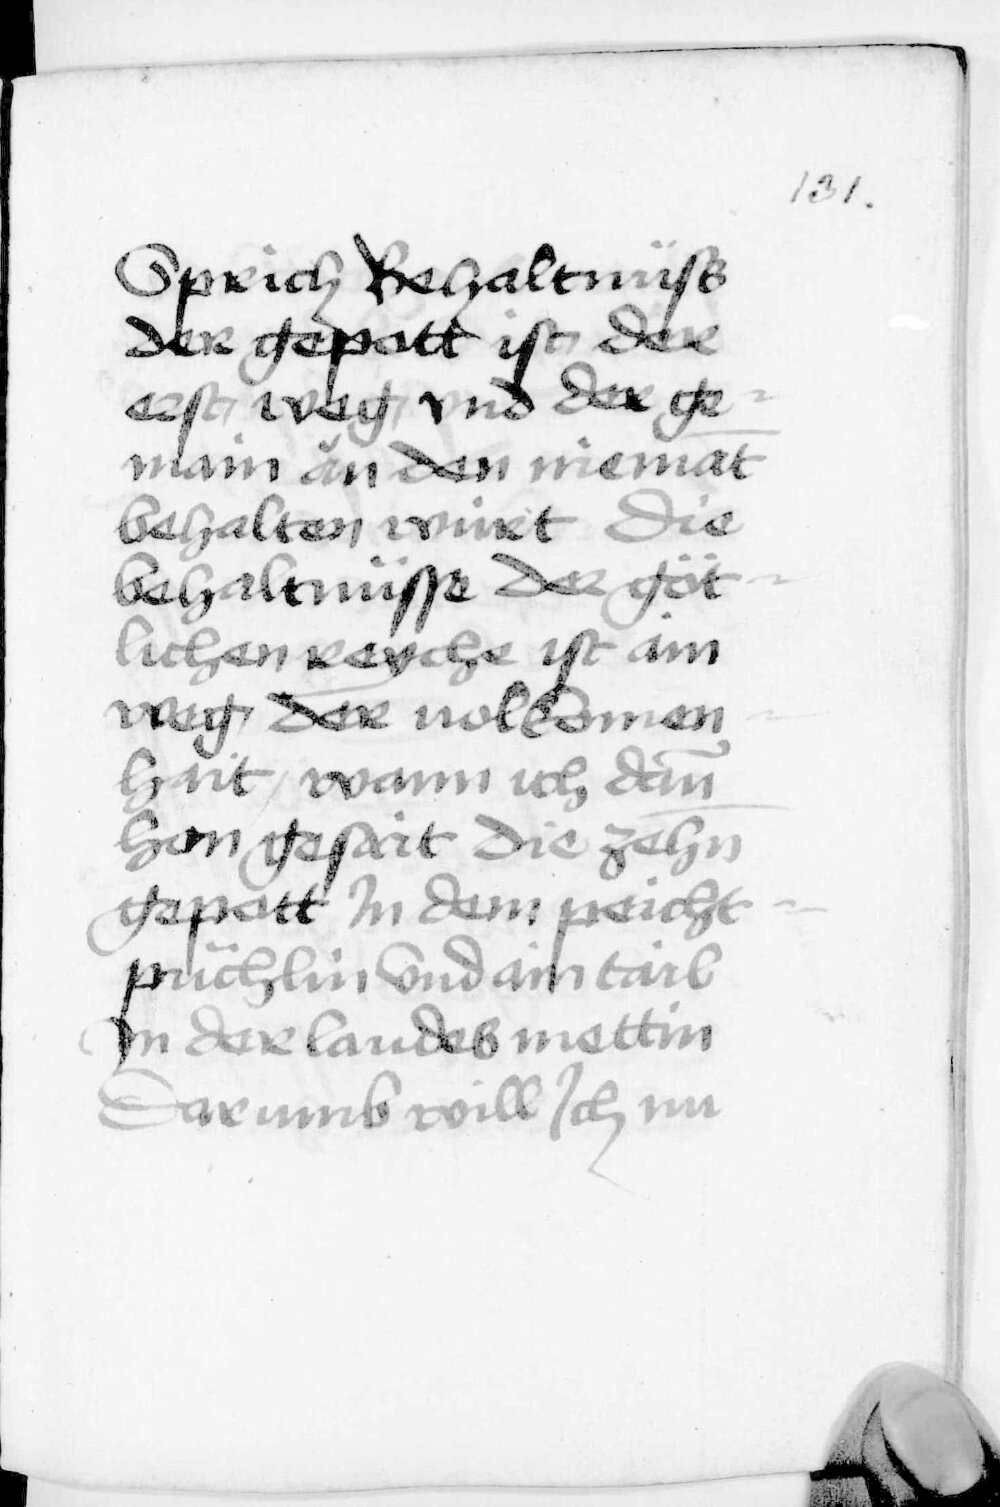 131.
Sprich Behaltnüsß
der gepott ist der
erst weg vnd der ge-
main ăn den niemāt
behalten würt Die
behaltnüsse der göt-
lichen reyche ist ain
weg der uolkomen-
hait / wann ich dañ
hon gesait die zehn
gepott In dem peicht-
püchlin vnd ain tail
In der laudes mettin
Darumb will Ich nu